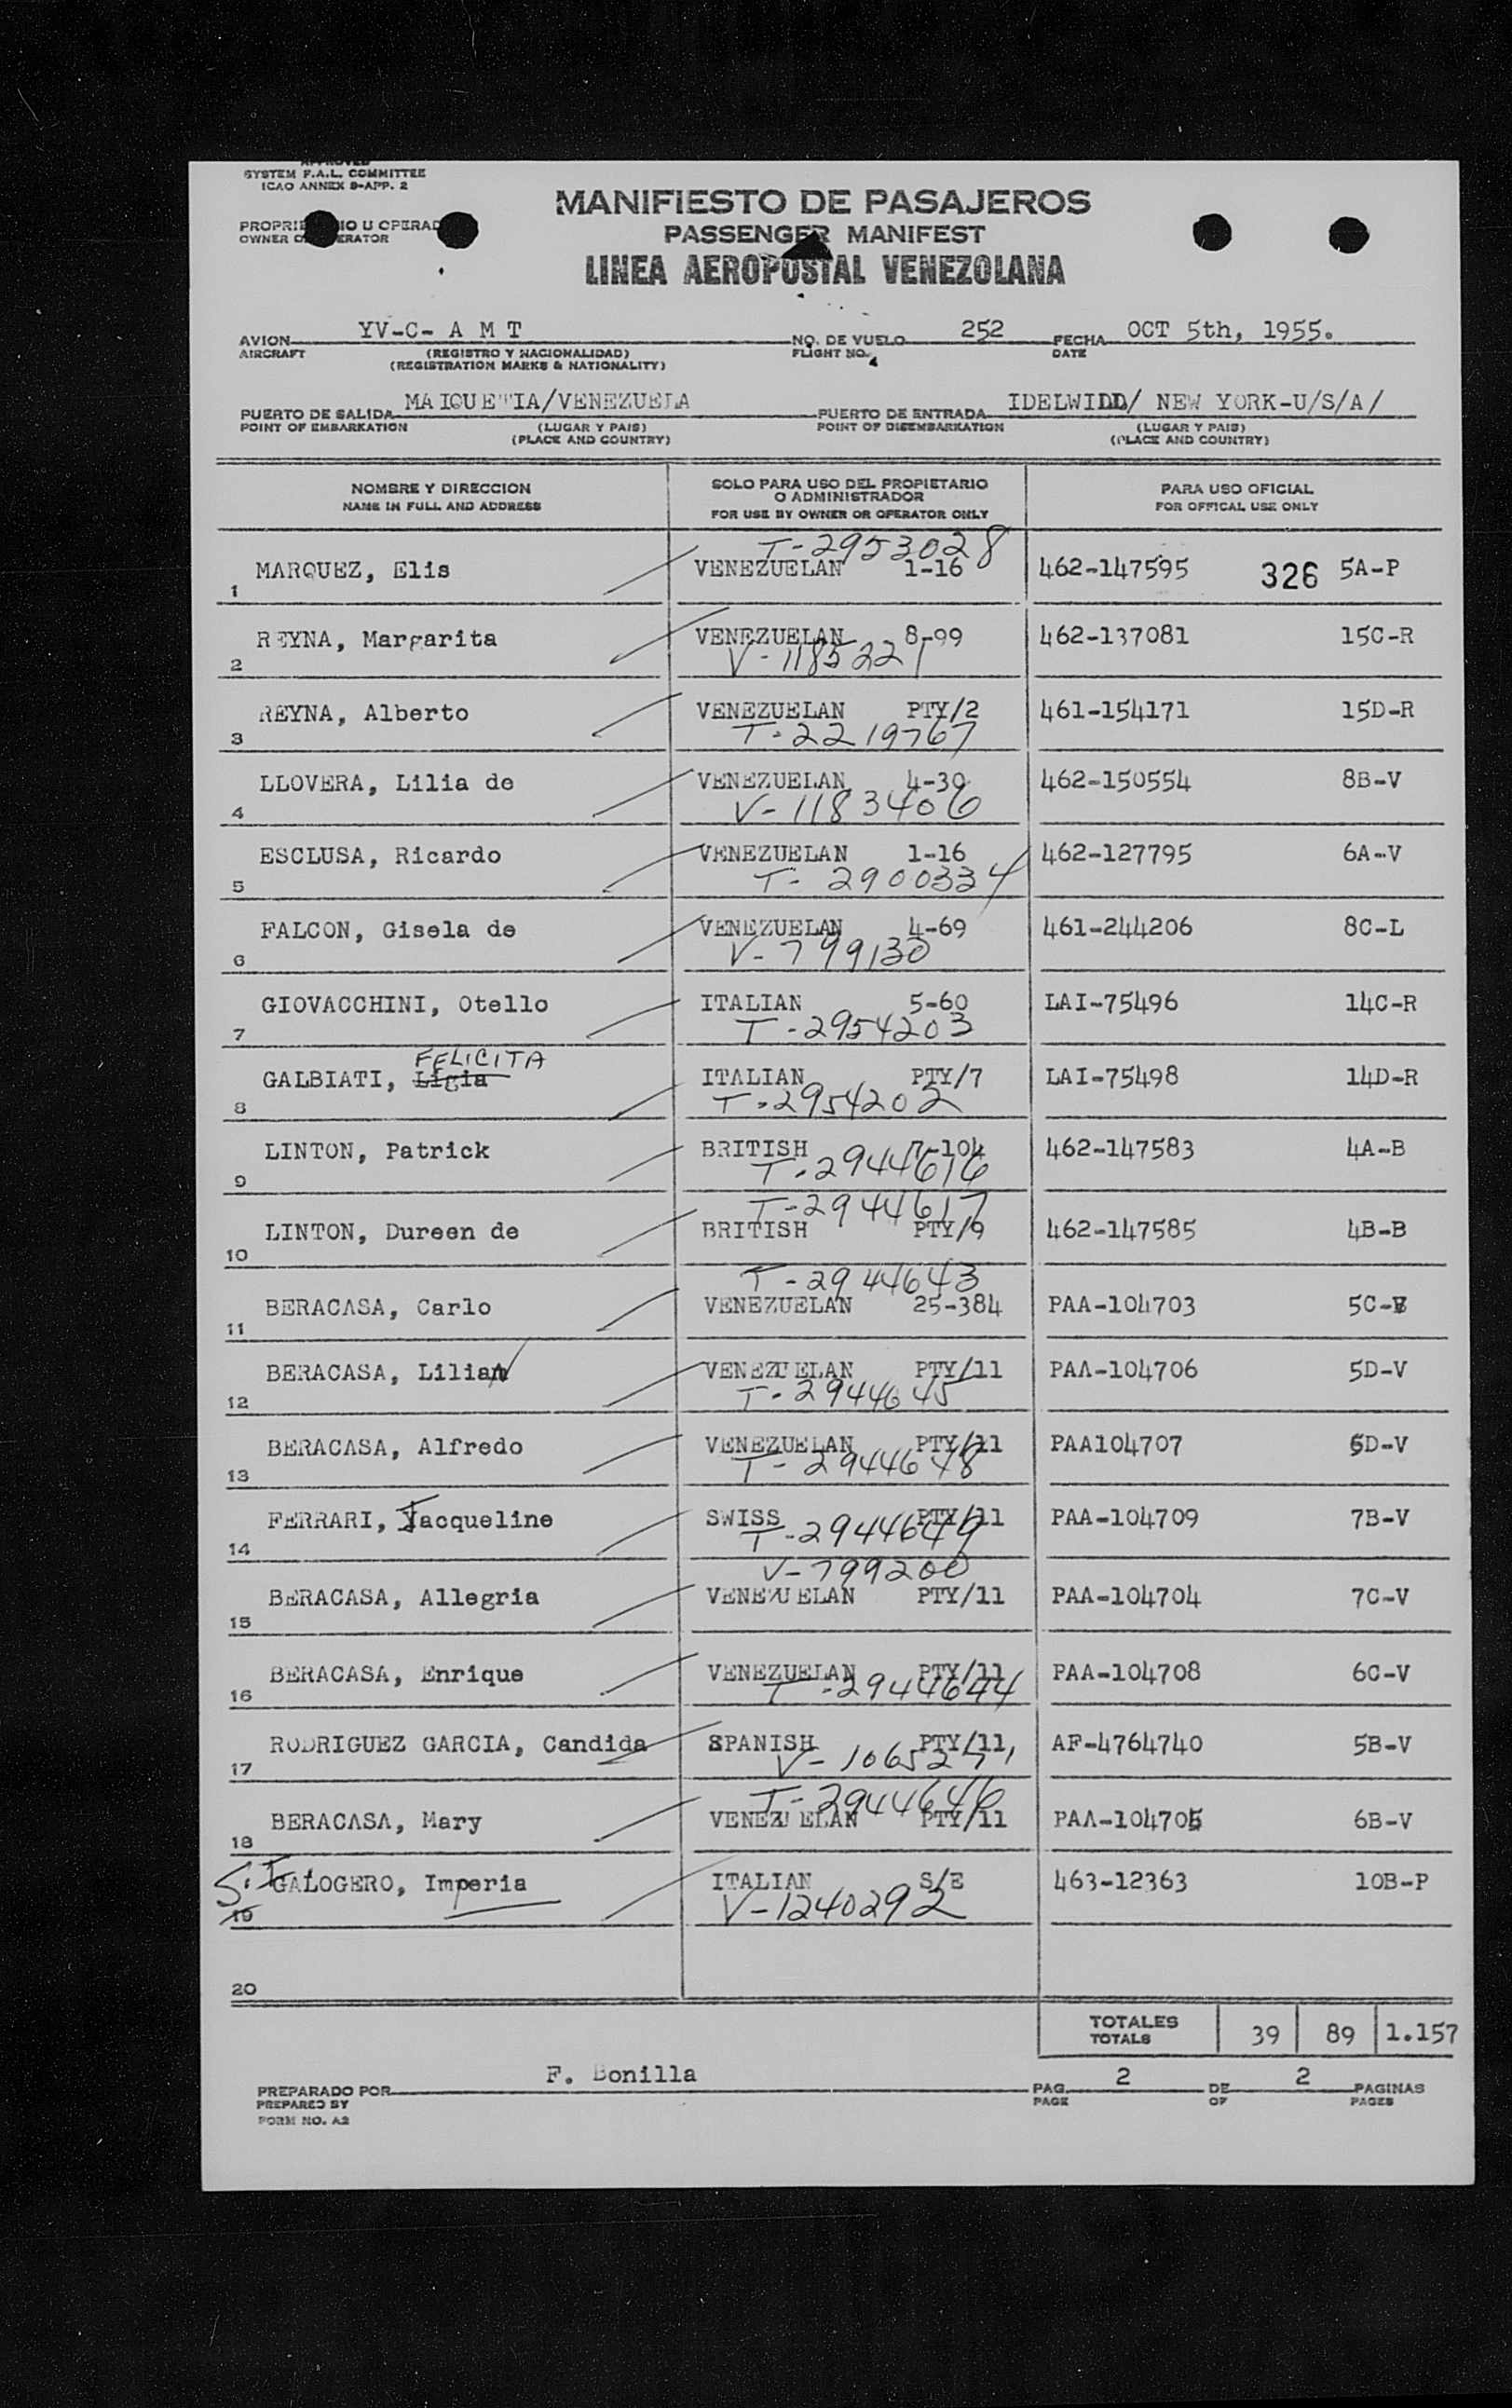 APPROVED
SYSTEM F.A.L. COMMITTEE
ICAO ANNEX 9-APP. 2
MANIFIESTO DE PASAJEROS
PASSENGER MANIFEST
LINEA AEROPOSTAL VENEZOLANA
OWNER
AVION YV-C- A M T NO. DE VUELO 252 FECHA OCT 5th, 1955.
AIRCRAFT (REGISTRO Y NACIONALIDAD) FLIGHT NO. DATE
(REGISTRATION MARKS & NATIONALITY)
PUERTO DE SALIDA MAIQUETIA/VENEZUELA PUERTO DE ENTRADA IDELWIDD/ NEW YORK-U/S/A/
POINT OF EMBARKATION (LUGAR Y PAIS) POINT OF DISEMBARKATION (LUGAR Y PAIS)
(PLACE AND COUNTRY) (PLACE AND COUNTRY)
NOMBRE Y DIRECCION SOLO PARA USO DEL PROPIETARIO PARA USO OFICIAL
O ADMINISTRADOR
NAME IN FULL AND ADDRESS FOR USE BY OWNER OR OPERATOR ONLY FOR OFFICAL USE ONLY
T-2953028
1 MARQUEZ, Elis VENEZUELAN 1-16 462-147595 326 5A-P
2 REYNA, Margarita VENEZUELAN 8-99 462-137081 15C-R
V-1185221
3 REYNA, Alberto VENEZUELAN PTY/2 461-154171 15D-R
T-2219767
4 LLOVERA, Lilia de VENEZUELAN 4-30 462-150554 8B-V
V-1183406
5 ESCLUSA, Ricardo VENEZUELAN 1-16 462-127795 6A-V
T-2900334
6 FALCON, Gisela de VENEZUELAN 4-69 461-244206 8C-L
V-799130
7 GIOVACCHINI, Otello ITALIAN 5-60 LAI-75496 14C-R
T-2954203
FELICITA
8 GALBIATI, Ligia ITALIAN PTY/7 LAI-75498 14D-R
T-2954202
9 LINTON, Patrick BRITISH 7-104 462-147583 4A-B
T-2944616
T-2944617
10 LINTON, Dureen de BRITISH PTY/9 462-147585 4B-B
T-2944643
11 BERACASA, Carlo VENEZUELAN 25-384 PAA-104703 5C-V
12 BERACASA, Lilian VENEZUELAN PTY/11 PAA-104706 5D-V
T-2944645
13 BERACASA, Alfredo VENEZUELAN PTY/11 PAA104707 6D-V
T-2944648
14 FERRARI, Jacqueline SWISS PTY/11 PAA-104709 7B-V
T-2944649
V-799200
15 BERACASA, Allegria VENEZUELAN PTY/11 PAA-104704 7C-V
16 BERACASA, Enrique VENEZUELAN PTY/11 PAA-104708 6C-V
T-2944644
17 RODRIGUEZ GARCIA, Candida SPANISH PTY/11 AF-4764740 5B-V
V-1065271
T-2944646
18 BERACASA, Mary VENEZUELAN PTY/11 PAA-104705 6B-V
19 GALOGERO, Imperia ITALIAN S/E 463-12363 10B-P
V-1240292
20
TOTALES
TOTALS 39 89 1.157
PREPARADO POR F. Bonilla PAG. 2 DE 2 PAGINAS
PREPARED BY PAGE OF PAGES
FORM NO. A2